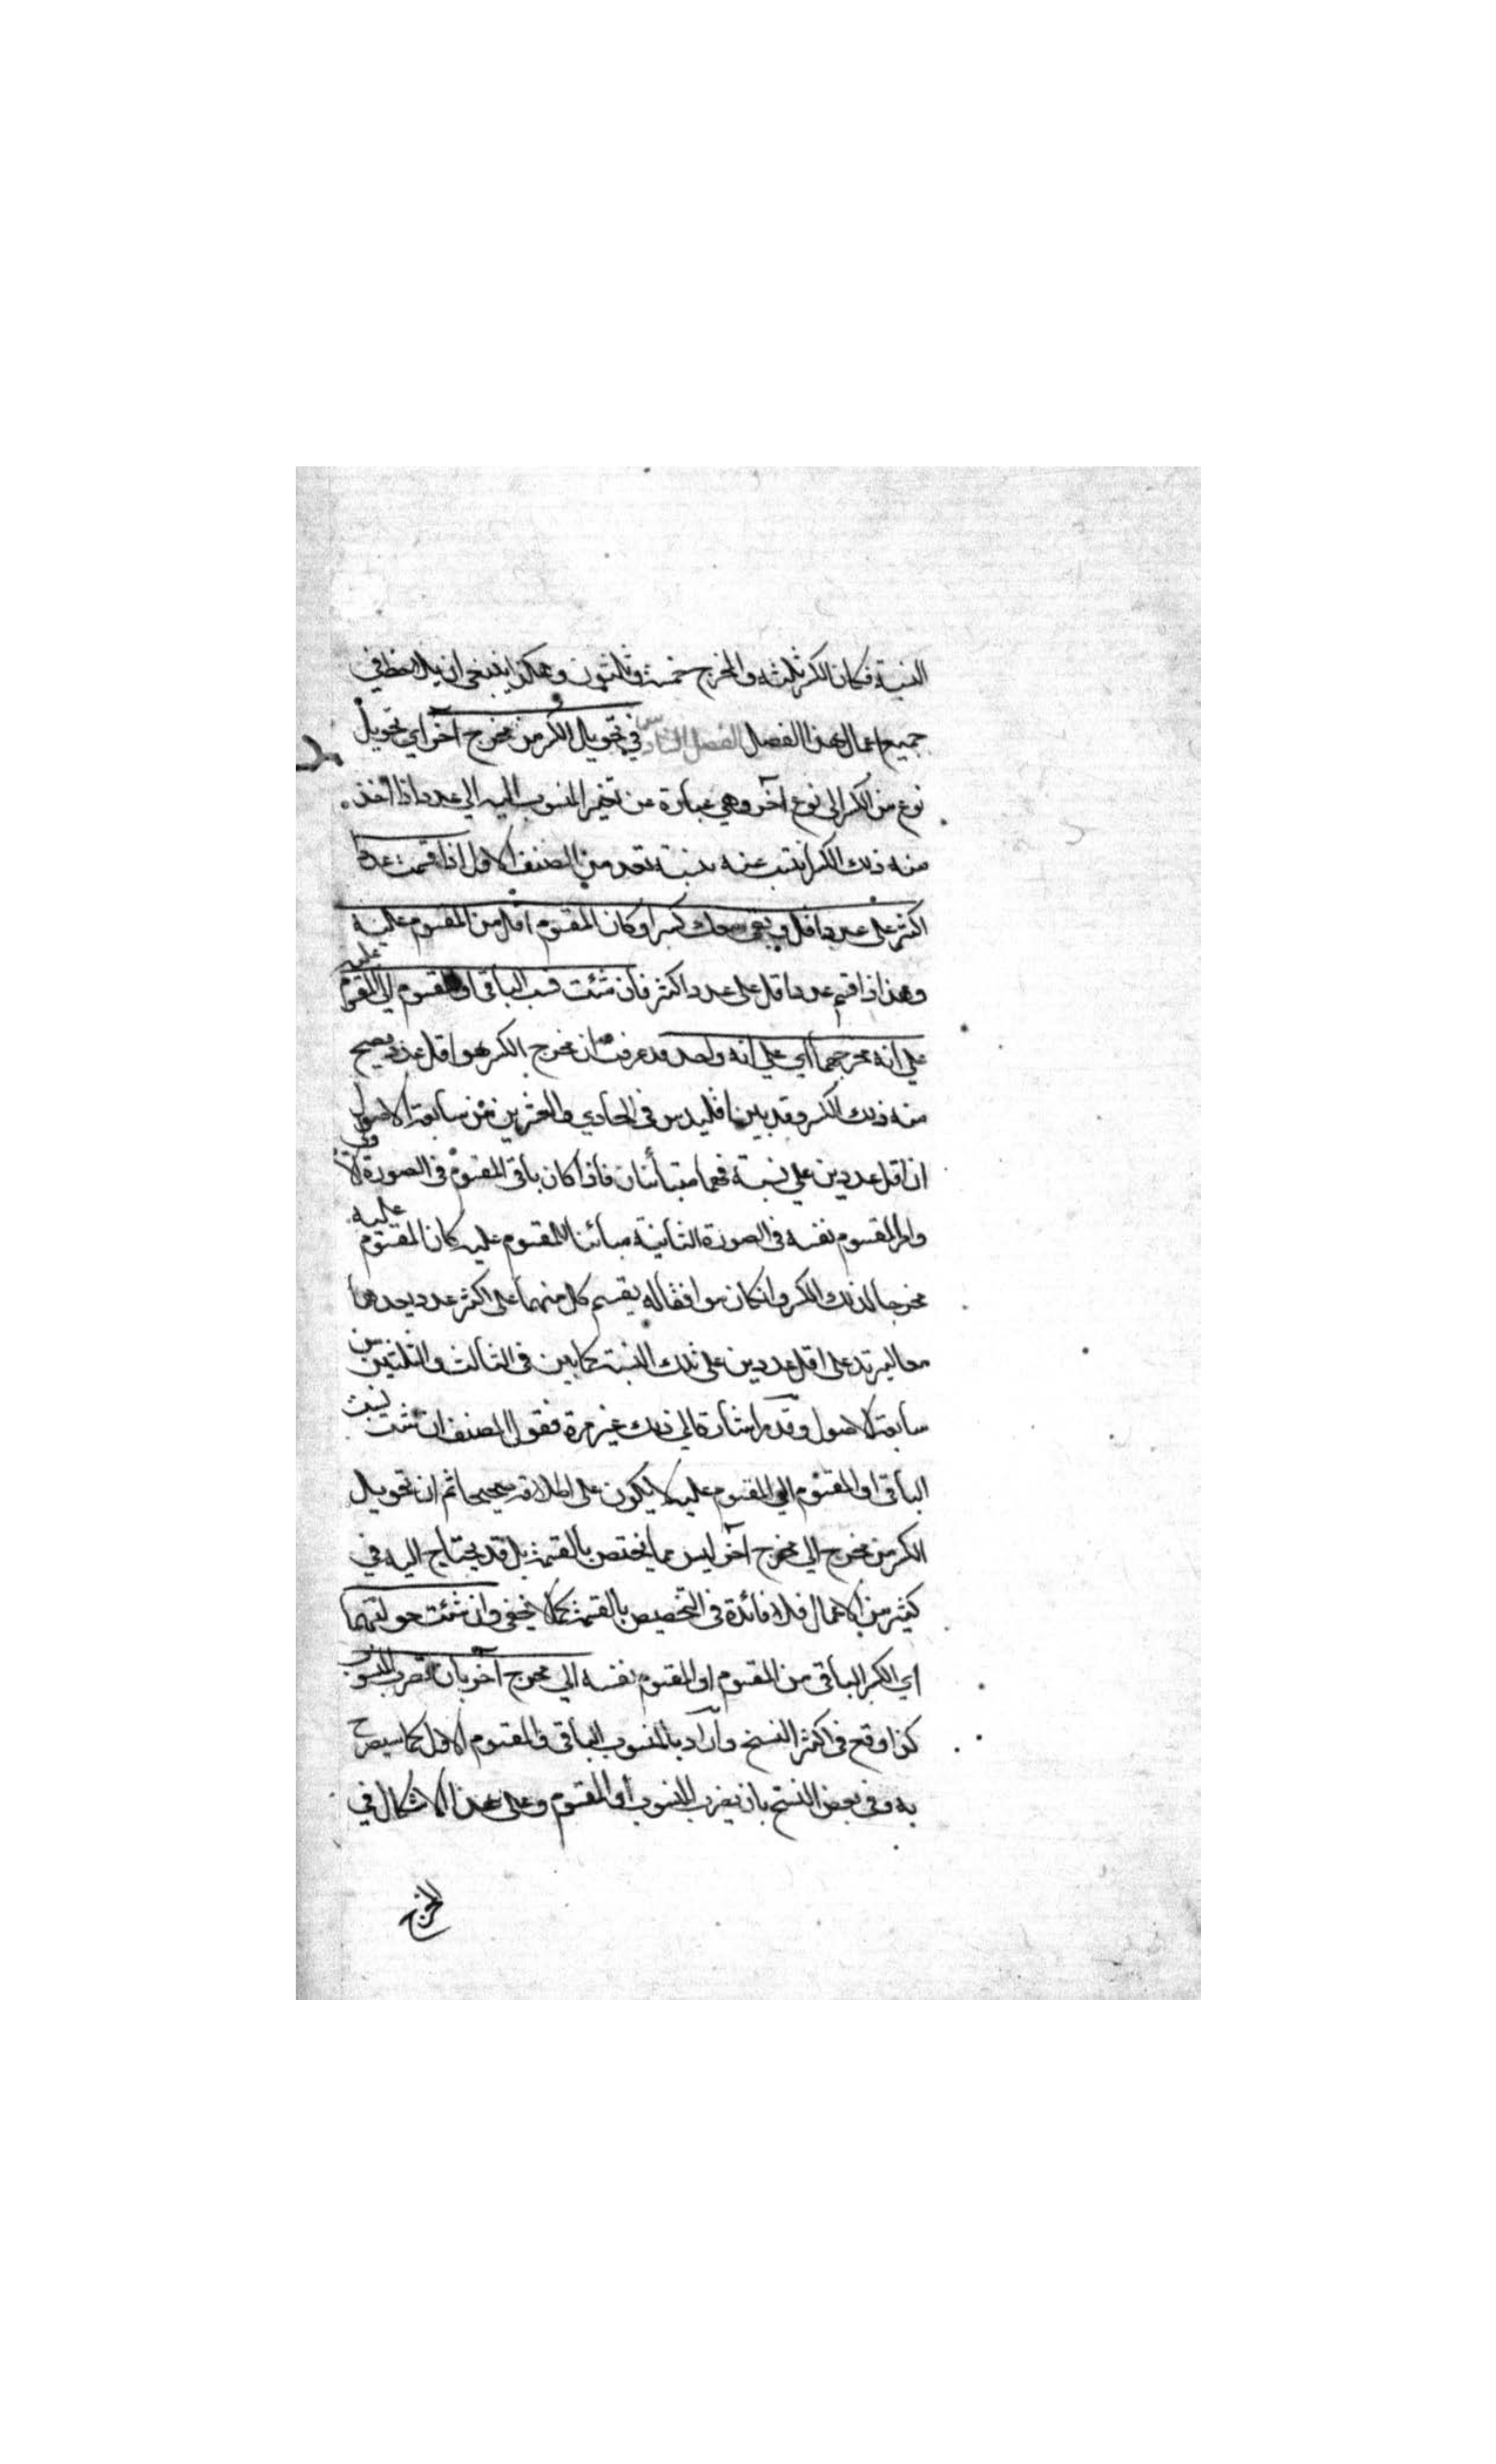 النسبة فكان الكسر ثلثة والمخرج خمسة وثلثون وهكذا ينبغي ان يلاحظ في
جميع اعمال هذا الفصل الفصل السادس في تحويل الكسر من مخرج آخر اي تحويل
نوع من الكسر الى نوع آخر وهي عبارة عن تغيير المنسوب اليه الى عدد اذا اخذ
منه ذلك الكسر انتسب عنه بنسبة تعد من الصنف الاول اذا قسمت عددا
اكثر على عدد اقل وبقي معك كسر او كان المقسوم اقل من المقسوم عليه
وهذا اذا قسم عدد اقل على عدد اكثر فان شئت نسب الباقي او المقسوم الى المقسوم عليه
على انه مخرجهما اي على انه واحد قد عرفت ان مخرج الكسر هو اقل عدد يصح
منه ذلك الكسر وقد بين اقليدس في الحادي والعشرين من سابعة الاصول
ان اقل عددين على نسبة فهما متبائنان فاذا كان باقي المقسوم في الصورة الاولى
وامر المقسوم نفسه في الصورة الثانية مبائنا للمقسوم عليه كان المقسوم عليه
مخرجا لذلك الكسر وان كان موافقا له يقسم كل منهما على اكثر عدد يعدهما
معا ليرتد على اقل عددين على تلك النسبة كما بين في الثالث والثلثين من
سابعة الاصول وقد مر اشارة الى ذلك غير مرة فقول المصنف ان شئت نسبت
الباقي او المقسوم الى المقسوم عليه لا يكون على اطلاقه صحيحا ثم ان تحويل
الكسر من مخرج الى مخرج آخر ليس مما يختص بالقسمة بل قد يحتاج اليه في
كثير من الاعمال فلا فائدة في التخصيص بالقسمة كما لا يخفى وان شئت حولتهما
اي الكسر الباقي من المقسوم او المقسوم نفسه الى مخرج آخر بان تضرب المنسوب
كذا وقع في اكثر النسخ واراد بالمنسوب الباقي والمقسوم الاول كما سيصرح
به وفي بعض النسخ بان يضرب المنسوب او المقسوم وعلى هذا الاشكال في
المخرج